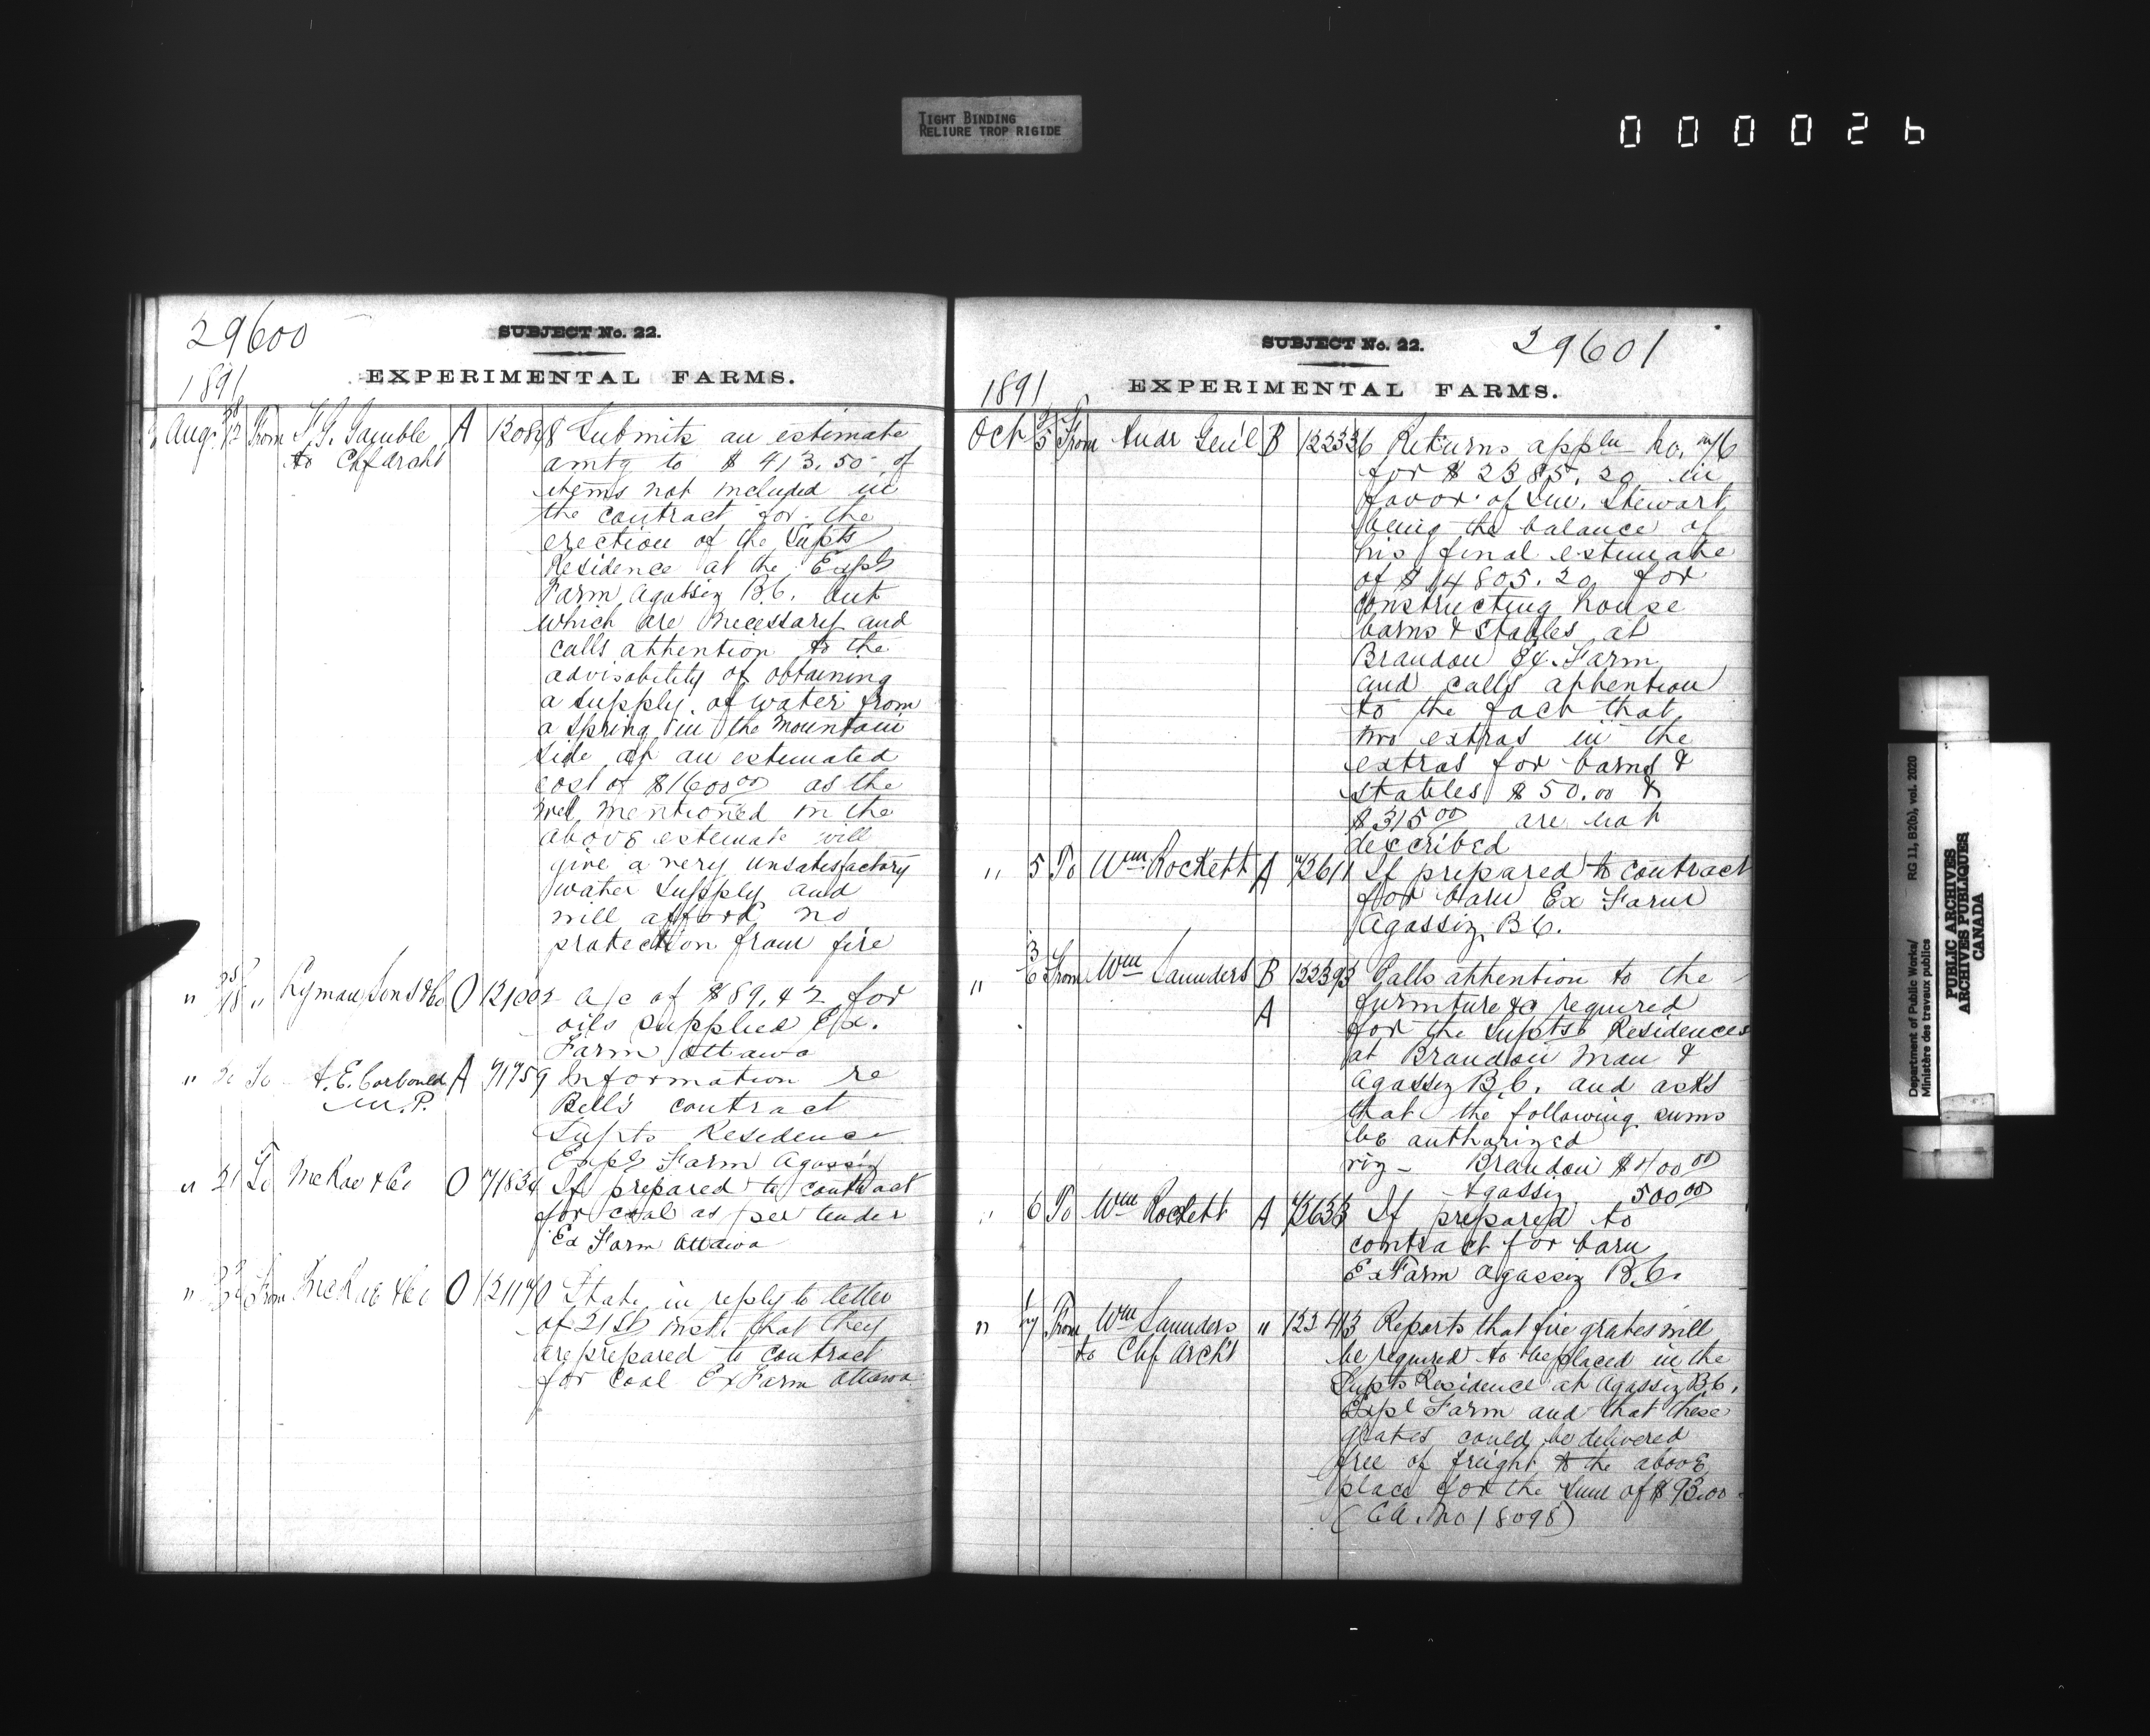 TIGHT BINDING
RELIURE TROP RIGIDE
000026
29600
SUBJECT No. 22.
EXPERIMENTAL FARMS.
1891
Aug. 12 From F. G. Gamble A 120898 Submits an estimate
to Chf Archt amtg to $413.50 of
items not included in
the contract for the
erection of the Supts
Residence at the Expl
Farm Agassiz B.C. but
which are necessary and
calls attention to the
advisability of obtaining
a supply of water from
a spring in the mountain
side at an estimated
cost of $1600.00 as the
well mentioned in the
above estimate will
give a very unsatisfactory
water supply and
will afford no
protection from fire
" 18 " Lyman Sons & Co O 121002 a/c of $89.42 for
oils supplied Ex.
Farm Ottawa
" 20 To A. E. Corbould A 71759 Information re
M.P. Bell's contract
Supts Residence
Expl Farm Agassiz
" 21 To McRae & Co O 71834 If prepared to contract
for coal as per tender
Ex Farm Ottawa
" From McRae & Co O State in reply to letter
of 21st inst. that they
are prepared to contract
for coal Ex Farm Ottawa
SUBJECT No. 22.
29601
EXPERIMENTAL FARMS.
1891
Oct 5 From Audr Gen'l B 122336 Returns appln no.
for $2385.20 in
favor of Stewart
being the balance of
his final estimate
of $14805.20 for
constructing house
barns & stables at
Brandon Ex. Farm
and calls attention
to the fact that
two extras in the
extras for barns &
stables $50.00 &
$315.00 are not
described
" 5 To Wm Rockett A 72611 If prepared to contract
for barn Ex Farm
Agassiz B.C.
" 6 From Wm Saunders B 122393 Calls attention to the
A furniture &c required
for the Supts Residences
at Brandon Man &
Agassiz B.C. and asks
that the following sums
be authorized
viz - Brandon $400.00
Agassiz 500.00
" 6 To Wm Rockett A 72633 If prepared to
contract for barn
Ex Farm Agassiz B.C.
" 7 From Wm Saunders " 122413 Reports that fire grates will
to Chf Archt be required to be placed in the
Supts Residence at Agassiz B.C.
Expl Farm and that these
grates could be delivered
free of freight to the above
place for the sum of $93.00
(CA. No 18098)
Department of Public Works/
Ministère des travaux publics
RG 11, B2(b), vol. 2020
PUBLIC ARCHIVES
ARCHIVES PUBLIQUES
CANADA